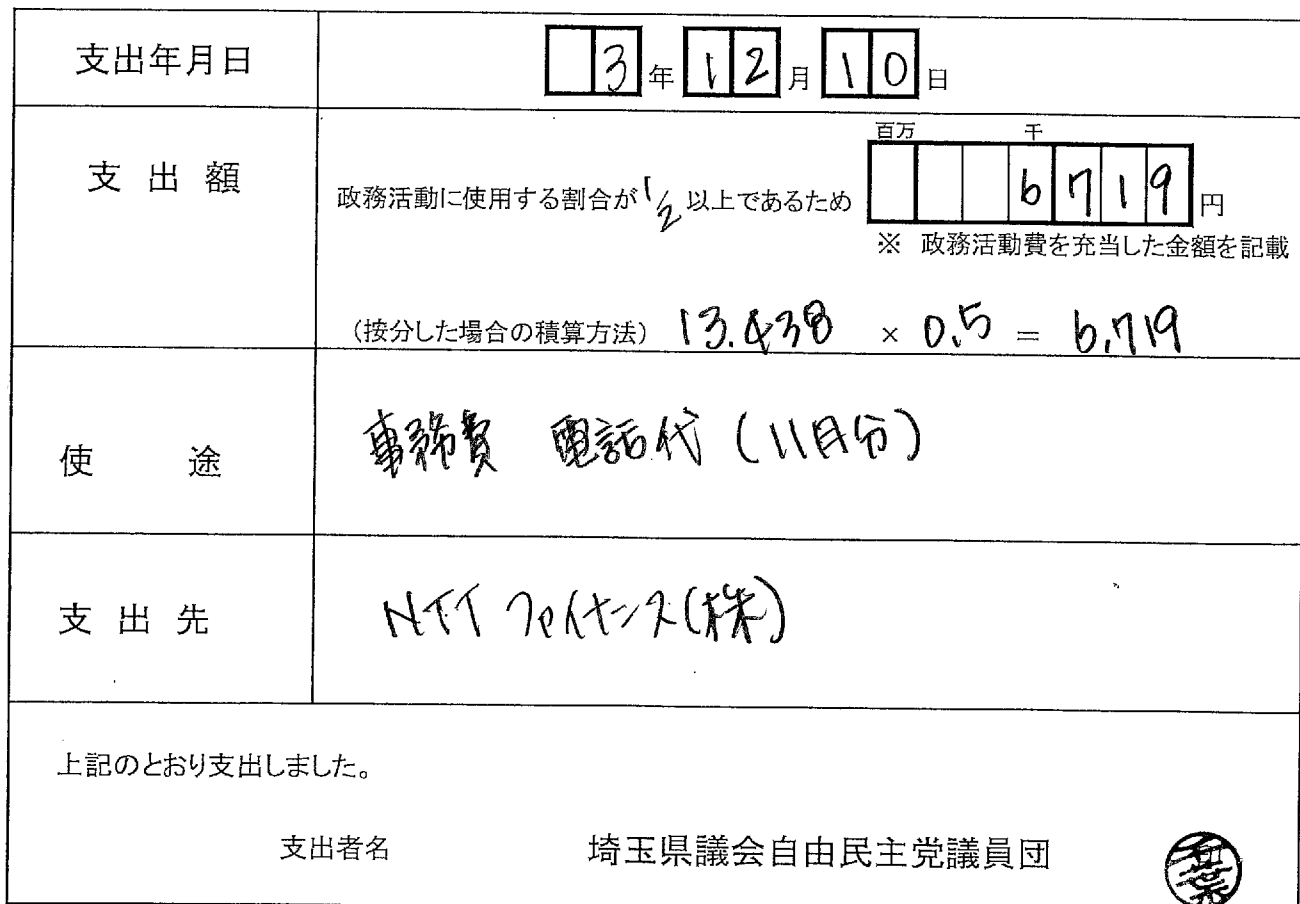 支出年月日 3年12月10日
百万 千
支出額 政務活動に使用する割合が1/2以上であるため 6719円
※ 政務活動費を充当した金額を記載
(按分した場合の積算方法) 13.438 × 0.5 = 6.719
使途 事務費 電話代(11月分)
支出先 NTTファイナンス(株)
上記のとおり支出しました。
支出者名 埼玉県議会自由民主党議員団